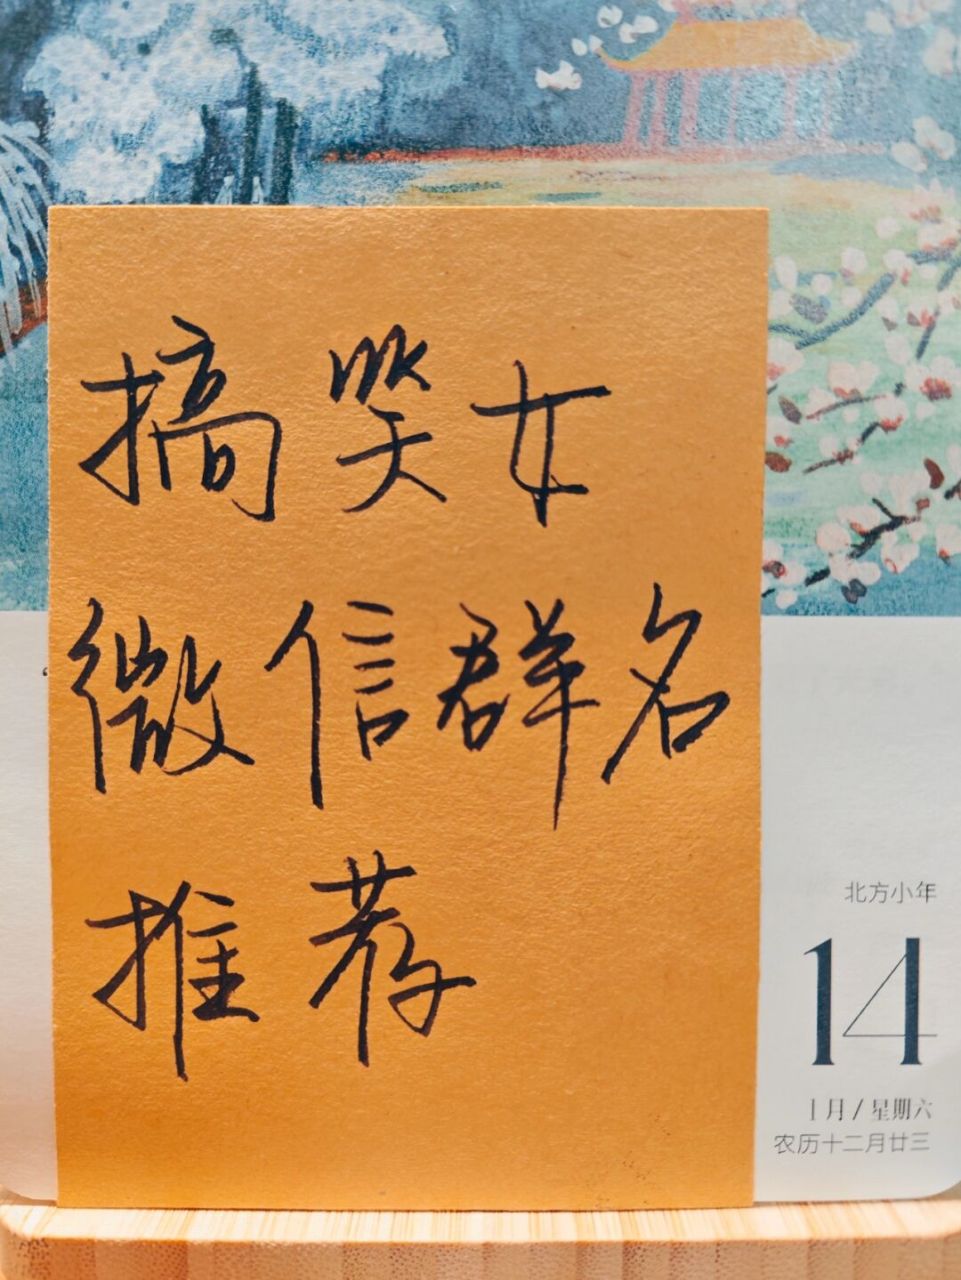 搞笑女
微信群名
推荐
北方小年
14
1月/星期六
农历十二月廿三